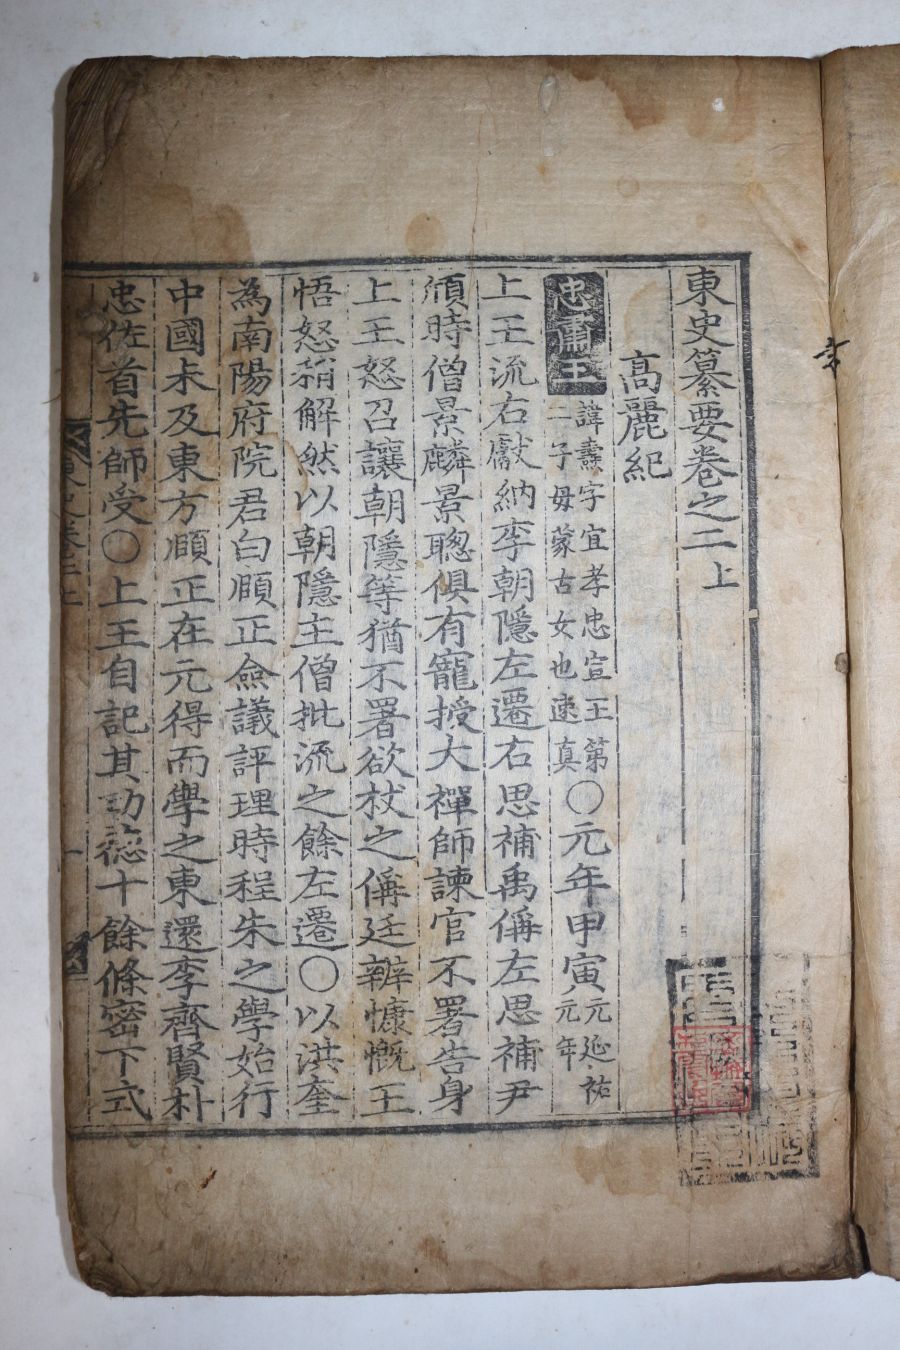 東史纂要卷之二上
高麗紀
忠肅王 諱燾字宜孝忠宣王第二子母蒙古女也速真〇元年甲寅元延祐元年
上王流右獻納李朝隱左遷右思補禹偁左思補尹
頎時僧景麟景聦俱有寵授大禪師諫官不署告身
上王怒召讓朝隱等猶不署欲杖之偁廷辨慷慨王
悟怒稍解然以朝隱主僧批流之餘左遷〇以洪奎
為南陽府院君白頤正僉議評理時程朱之學始行
中國未及東方頤正在元得而學之東還李齊賢朴
忠佐首先師受〇上王自記其功德十餘條密下式